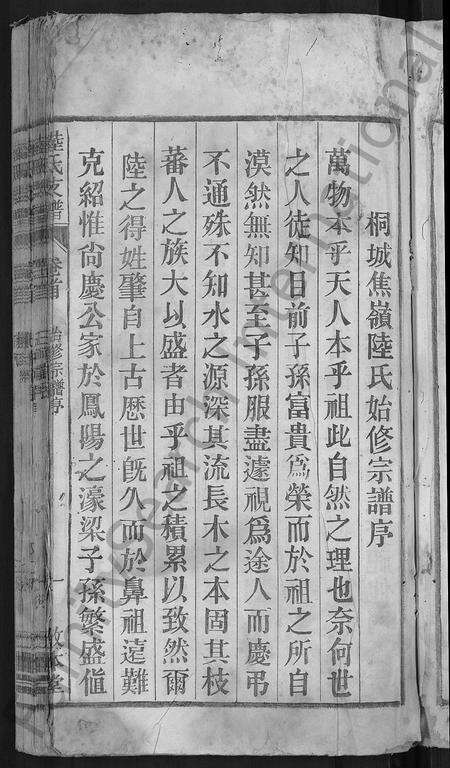 桐城焦嶺陸氏始修宗譜序
萬物本乎天人本乎祖此自然之理也奈何世
之人徒知目前子孫富貴為榮而於祖之所自
漠然無知甚至子孫服盡遽視爲途人而慶弔
不通殊不知水之源深其流長木之本固其枝
蕃人之族大以盛者由乎祖之積累以致然爾
陸之得姓肇自上古歷世旣久而於鼻祖遠難
克紹惟尙慶公家於鳳陽之濠梁子孫繁盛值
陸氏支譜 卷首 始修宗譜序 一